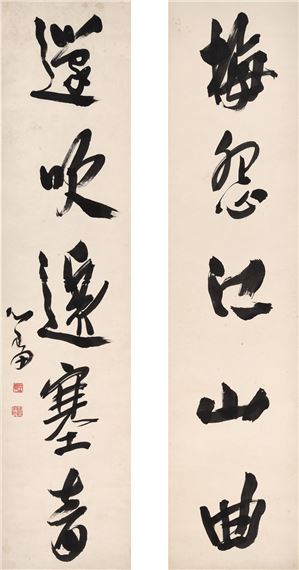 梅怨江山曲
還吹邊塞音
心畬